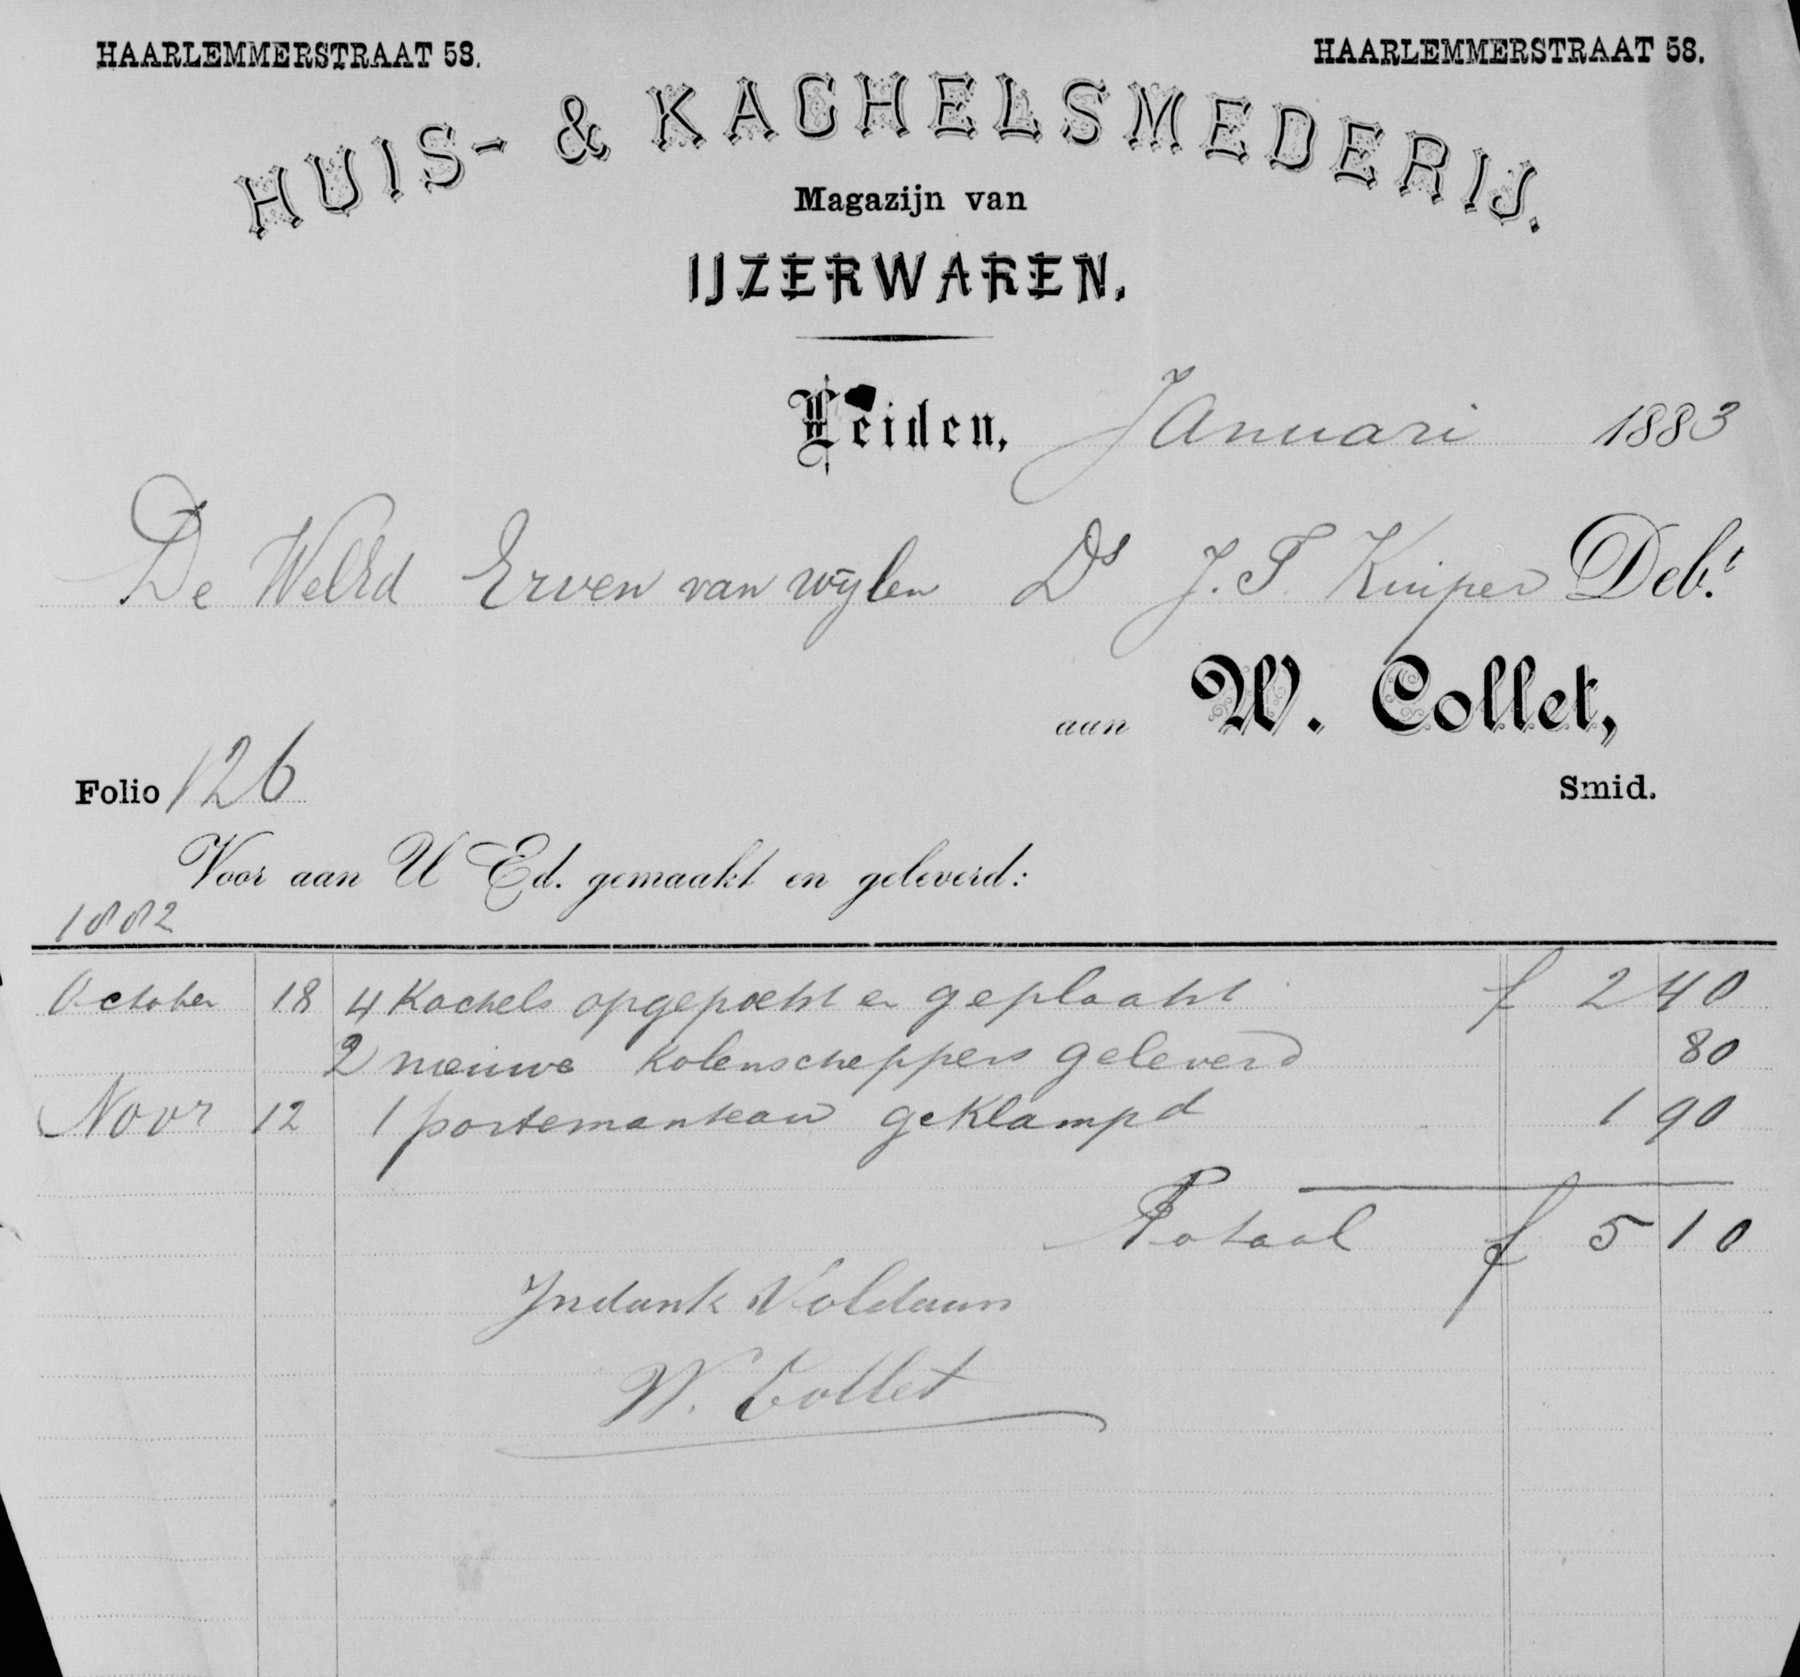 HAARLEMMERSTRAAT 58. HAARLEMMERSTRAAT 58.
HUIS- & KACHELSMEDERIJ.
Magazijn van
IJZERWAREN.
Leiden, Januari 1883
De WelEd Erven van wijlen Ds J. T. Kuiper Debt.
aan W. Collet,
Folio 126 Smid.
Voor aan U Ed. gemaakt en geleverd:
1882
October 18 4 Kachels opgepoetst en geplaatst f 2 40
2 nieuwe Kolenscheppers geleverd 80
Novr 12 1 portemanteau geklampd 1 90
Totaal f 5 10
In dank Voldaan
W. Collet